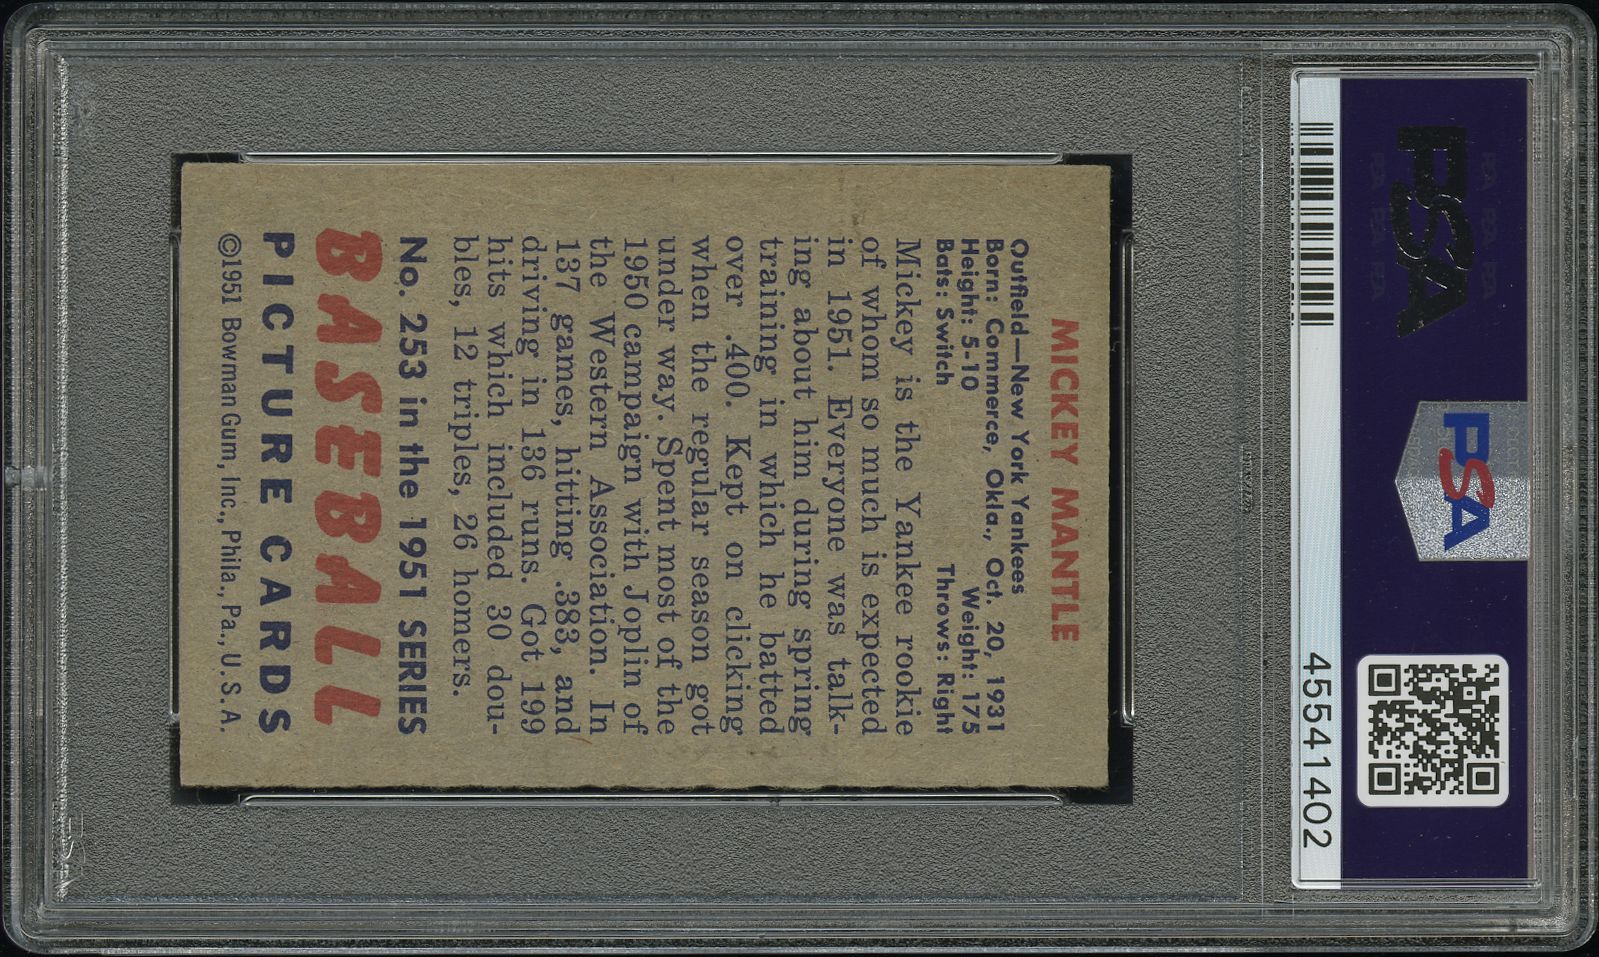 PSA
PSA
45541402
MICKEY MANTLE
Outfield—New York Yankees
Born: Commerce, Okla., Oct. 20, 1931
Height: 5-10 Weight: 175
Bats: Switch Throws: Right
Mickey is the Yankee rookie
of whom so much is expected
in 1951. Everyone was talk-
ing about him during spring
training in which he batted
over .400. Kept on clicking
when the regular season got
under way. Spent most of the
1950 campaign with Joplin of
the Western Association. In
137 games, hitting .383, and
driving in 136 runs. Got 199
hits which included 30 dou-
bles, 12 triples, 26 homers.
No. 253 in the 1951 SERIES
BASEBALL
PICTURE CARDS
©1951 Bowman Gum, Inc., Phila., Pa., U. S. A.